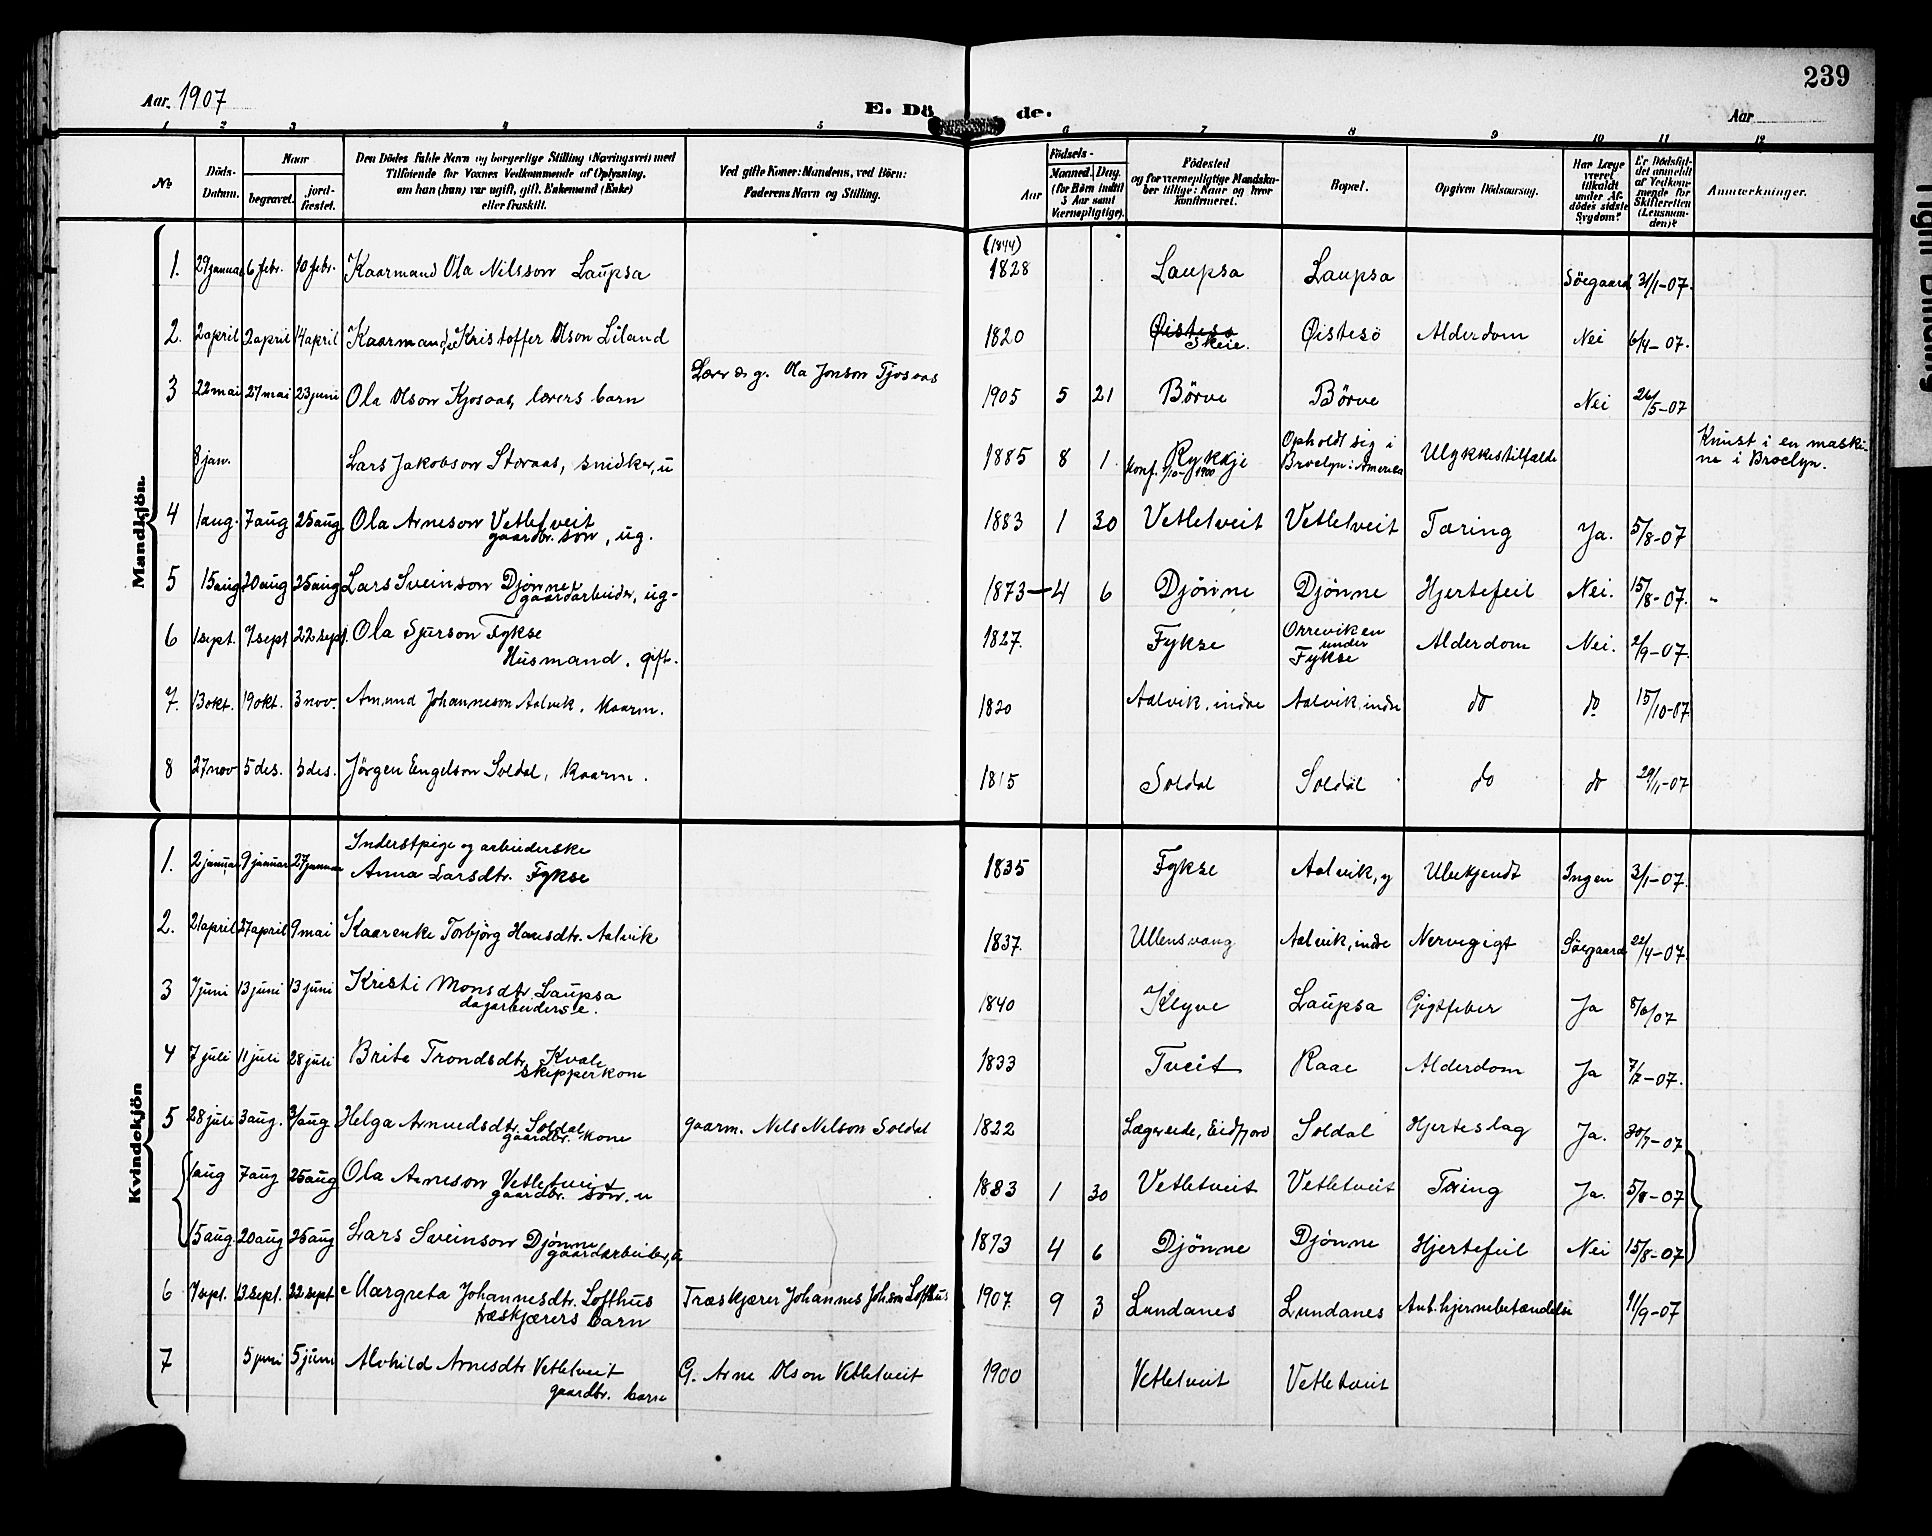 239
Aar. 1907
E. Dö de.
Aar
1 2 3 4 5 6 7 8 9 10 11 12
No
Döds-
Datum.
Naar
begravet.
jord-
fæstet.
Den Dödes fulde Navn og borgerlige Stilling (Næringsvei) med
Tilföiende for Voxnes Vedkommende af Oplysning,
om han (hun) var ugift, gift, Enkemand (Enke)
eller fraskilt.
Ved gifte Koner: Mandens, ved Börn:
Faderens Navn og Stilling.
Födsels-
Aar
Maaned. Dag.
(for Börn indtil
5 Aar samt
Værnepligtige).
Födested
og for værnepligtige Mandska-
ber tillige: Naar og hvor
konfirmeret.
Bopæl.
Opgiven Dödsaarsag.
Har Læge
været
tilkaldt
under Af-
dödes sidste
Sygdom?
Er Dödsfal-
det anmeldt
af Vedkom-
mende for
Skifteretten
(Lensman-
den)?
Anmærkninger.
Mandkjön.
(1844)
1. 29 januar 6 febr. 10 febr. Kaarmand Ola Nilsson Laupsa 1828 Laupsa Laupsa Söegaard 31/1-07.
2. 2 april 2 april 14 april Kaarmand, Kristoffer Olson Liland 1820 Øistesø Skeie. Øistesö Alderdom Nei 6/4-07.
3 22 mai 27 mai 23 juni Ola Olson Kjosaas, lærers barn Lærer og g. Ola Jonson Tjosaas 1905 5 21 Börve Börve Nei 26/5-07
8 jan. Lars Jakobson Storaas, snidker, u 1885 8 1 Rykkje konf. 1/10-1900 Opholdt sig i Broclyn i Amerika Ulykkestilfælde Knust i en maski-
ne i Broclyn.
4 1 aug. 7 aug 25 aug Ola Arneson Vetletveit gaardbr. sön, ug. 1883 1 30 Vetletveit Vetletveit Tæring Ja. 5/8-07
5 15 aug 20 aug 25 aug Lars Sveinson Djönne gaardarbeider, ug- 1873 4 6 Djönne Djönne Hjertefeil Nei. 15/8-07.
6 1 sept. 7 sept 22 sept. Ola Sjurson Fykse Husmand, gift. 1827. Fykse Orreviken under Fykse Alderdom Nei. 2/9-07.
7. 13 okt. 19 okt. 3 nov. Amund Johanneson Aalvik, kaarm. 1820 Aalvik, indre Aalvik, indre do do 15/10-07
8 27 nov 5 des. 5 des. Jörgen Engelson Soldal, kaarm. 1815 Soldal Soldal do do 29/11-07
Kvindekjön
Inderstpige og arbeiderske
1. 2 januar 9 januar 27 januar Anna Larsdtr. Fykse 1835 Fykse Aalvik, y Ubekjendt Ingen 3/1-07.
2. 21 april 27 april 9 mai Kaarenke Torbjörg Hansdtr. Aalvik 1837. Ullensvang Aalvik, indre Nervegigt Söegaard 22/4-07.
3 7 juni 13 juni 13 juni Kristi Monsdtr. Laupsa dagarbeiderske. 1840 Klyve Laupsa Gigtfeber Ja 8/6/07
4 7 juli 11 juli 28 juli Brita Trondsdtr. Kvale skipperkone 1833 Tveit Raae Alderdom Ja 7/7-07.
5 28 juli 3 aug. 3/aug Helga Arnvedsdtr. Soldal gaardbr. kone gaarm. Nels Nelson Soldal 1822 Lægereide, Eidfjord Soldal Hjerteslag Ja. 30/7-07
1 aug 7 aug 25 aug Ola Arneson Vetletveit gaardbr. sön, u 1883 1 30 Vetletveit Vetletveit Tæring Ja. 5/8-07
15 aug. 20 aug 25 aug Lars Sveinson Djönne gaardarbeider, u 1873 4 6 Djönne Djönne Hjertefeil Nei 15/8-07
6 7 sept. 13 sept. 22 sept Margreta Johannesdtr. Lofthus træskjærers barn Træskjærer Johannes Johson Lofthus 1907. 9 3 Lundanes Lundanes Ant. hjernebetændelse 11/9-07
7 5 juni 5 juni Alvhild Arnesdtr. Vetletveit gaardbr. barn G. Arne Olson Vetletveit 1900 Vetletveit Vetletveit